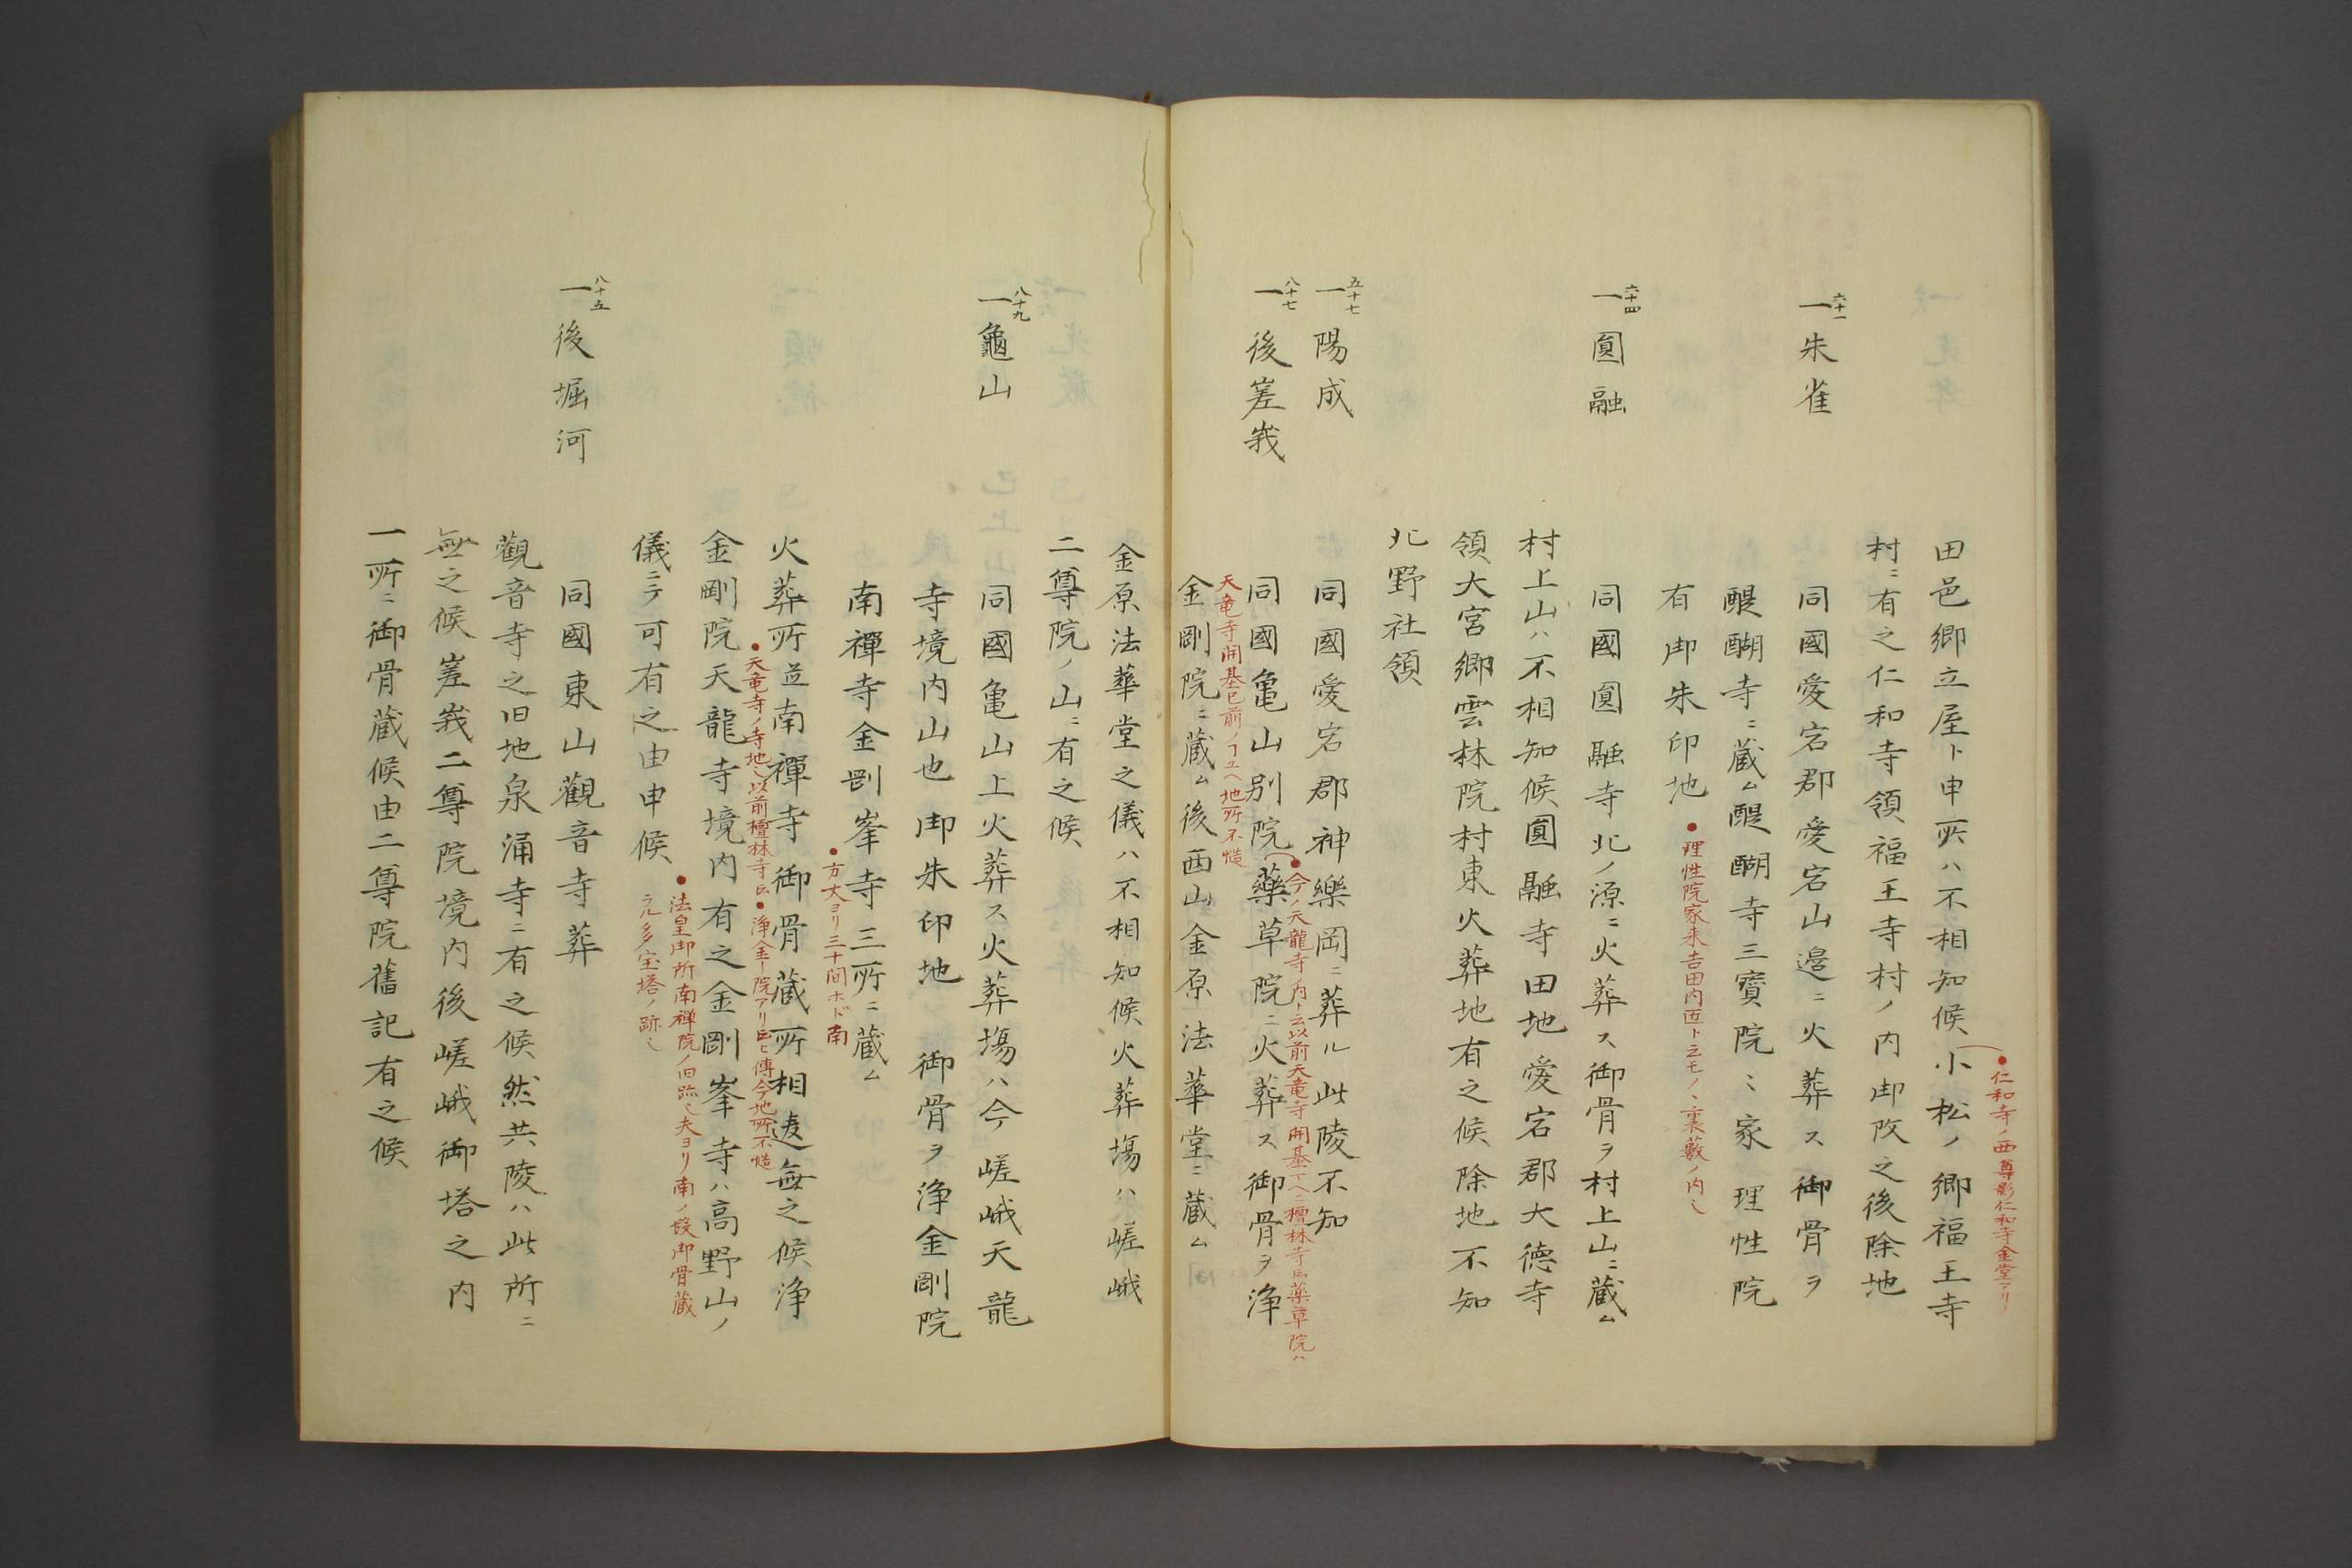 仁和寺ノ西尊影仁和寺金堂アリ
田邑郷立屋ト申所ハ不相知候小松ノ郷福王寺
村ニ有之仁和寺領福王寺村ノ内御改之後除地
六十一
一朱雀
同國愛宕郡愛宕山邉ニ火葬ス御骨ヲ
醍醐寺ニ蔵ム醍醐寺三寳院ミ家理性院
有御朱印地
理性院家来吉田内匠ト云モノヽ裏藪ノ内
六十四
一圓融
同國圓融寺北ノ源ニ火葬ス御骨ヲ村上山ニ蔵ム
村上山ハ不相知候圓融寺田地愛宕郡大徳寺
領大宮郷雲林院村東火葬地有之候除地不知
北野社領
五十七
一陽成
同國愛宕郡神樂岡ニ葬ル此陵不知
今ノ天龍寺内ト云以前天竜寺開基マヘニ檀林寺ノ藥草院ハ
八十七
一後嵳峩
同國亀山別院藥草院ニ火葬ス御骨ヲ浄
天竜寺開基已前ノコユヘ地所不慥
金剛院ニ蔵ム後西山金原法華堂ニ蔵ム
金原法華堂之儀ハ不相知候火葬場ハ嵯峨
二尊院ノ山ニ有之候
八十九
一龜山
同國亀山上火葬ス火葬場ハ今嵯峨天龍
寺境内山也御朱印地 御骨ヲ浄金剛院
南禪寺金剛峯寺三所ニ蔵ム
方丈ヨリ三十間ホド南
火葬所並南禪寺御骨蔵所相違無之候浄
天竜寺ノ寺地以前檀林寺
浄金ー院アリ
傳今地所不慥
金剛院天龍寺境内有之金剛峯寺ハ高野山ノ
法皇御所南禅院ノ旧跡夫ヨリ南ノ段御骨蔵
ラル多宝塔ノ跡
儀ニテ可有之由申候
八十五
一後堀河
同國東山觀音寺葬
觀音寺之旧地泉涌寺ニ有之候然共陵ハ此所ニ
無之候嵳峩二尊院境内後嵯峨御塔之内
一所ニ御骨蔵候由二尊院舊記有之候